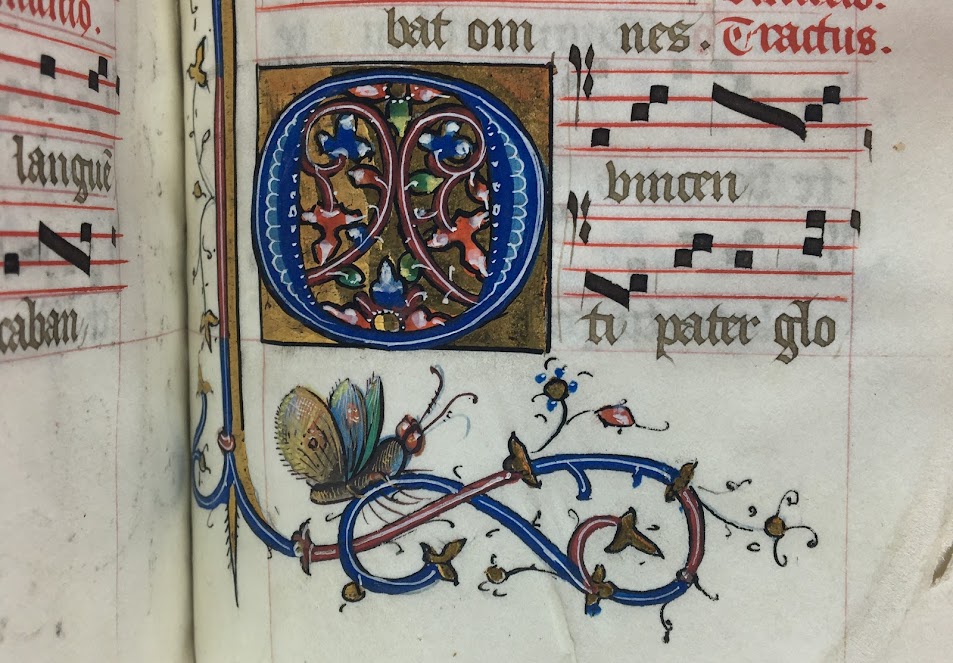 languē
caban
bat om nes. Tractus.
O vincen
ti pater glo